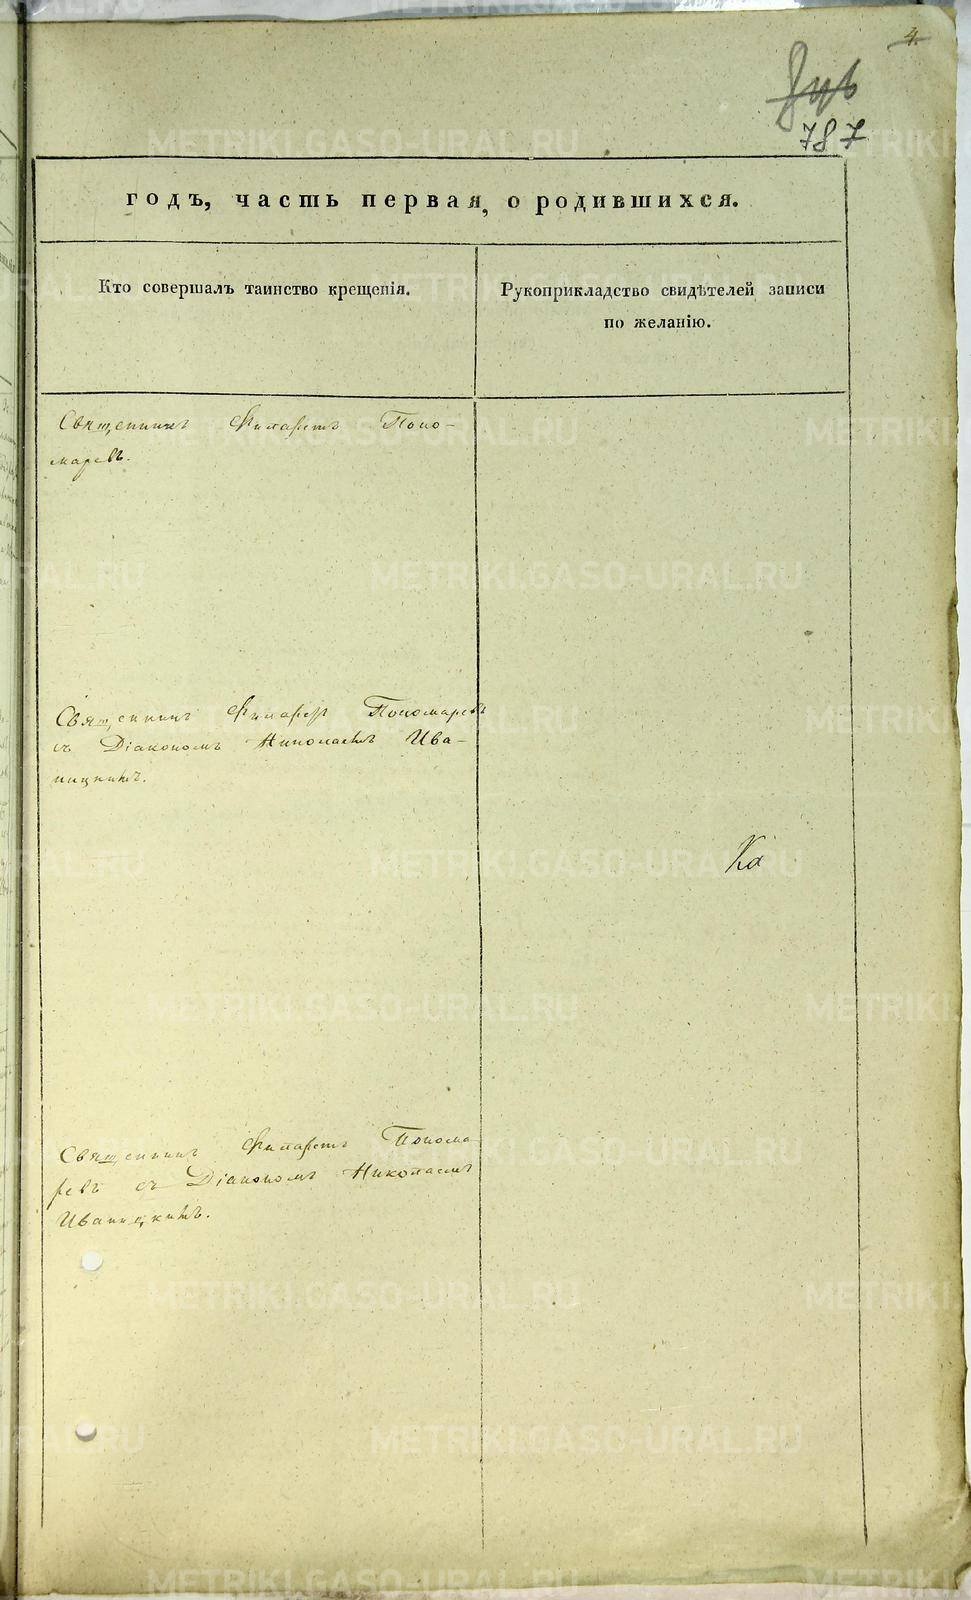 4.
787
годъ, часть первая, о родившихся.
Кто совершалъ таинство крещенія.
Рукоприкладство свидѣтелей записи
по желанію.
Священникъ Филаретъ Поно-
маревъ.
Священникъ Филаретъ Пономаревъ
съ Діакономъ Николаемъ Ива-
ницкимъ.
Ка
Священникъ Филаретъ Понома-
ревъ съ Діакономъ Николаемъ
Иваницкимъ.
METRIKI.GASO-URAL.RU